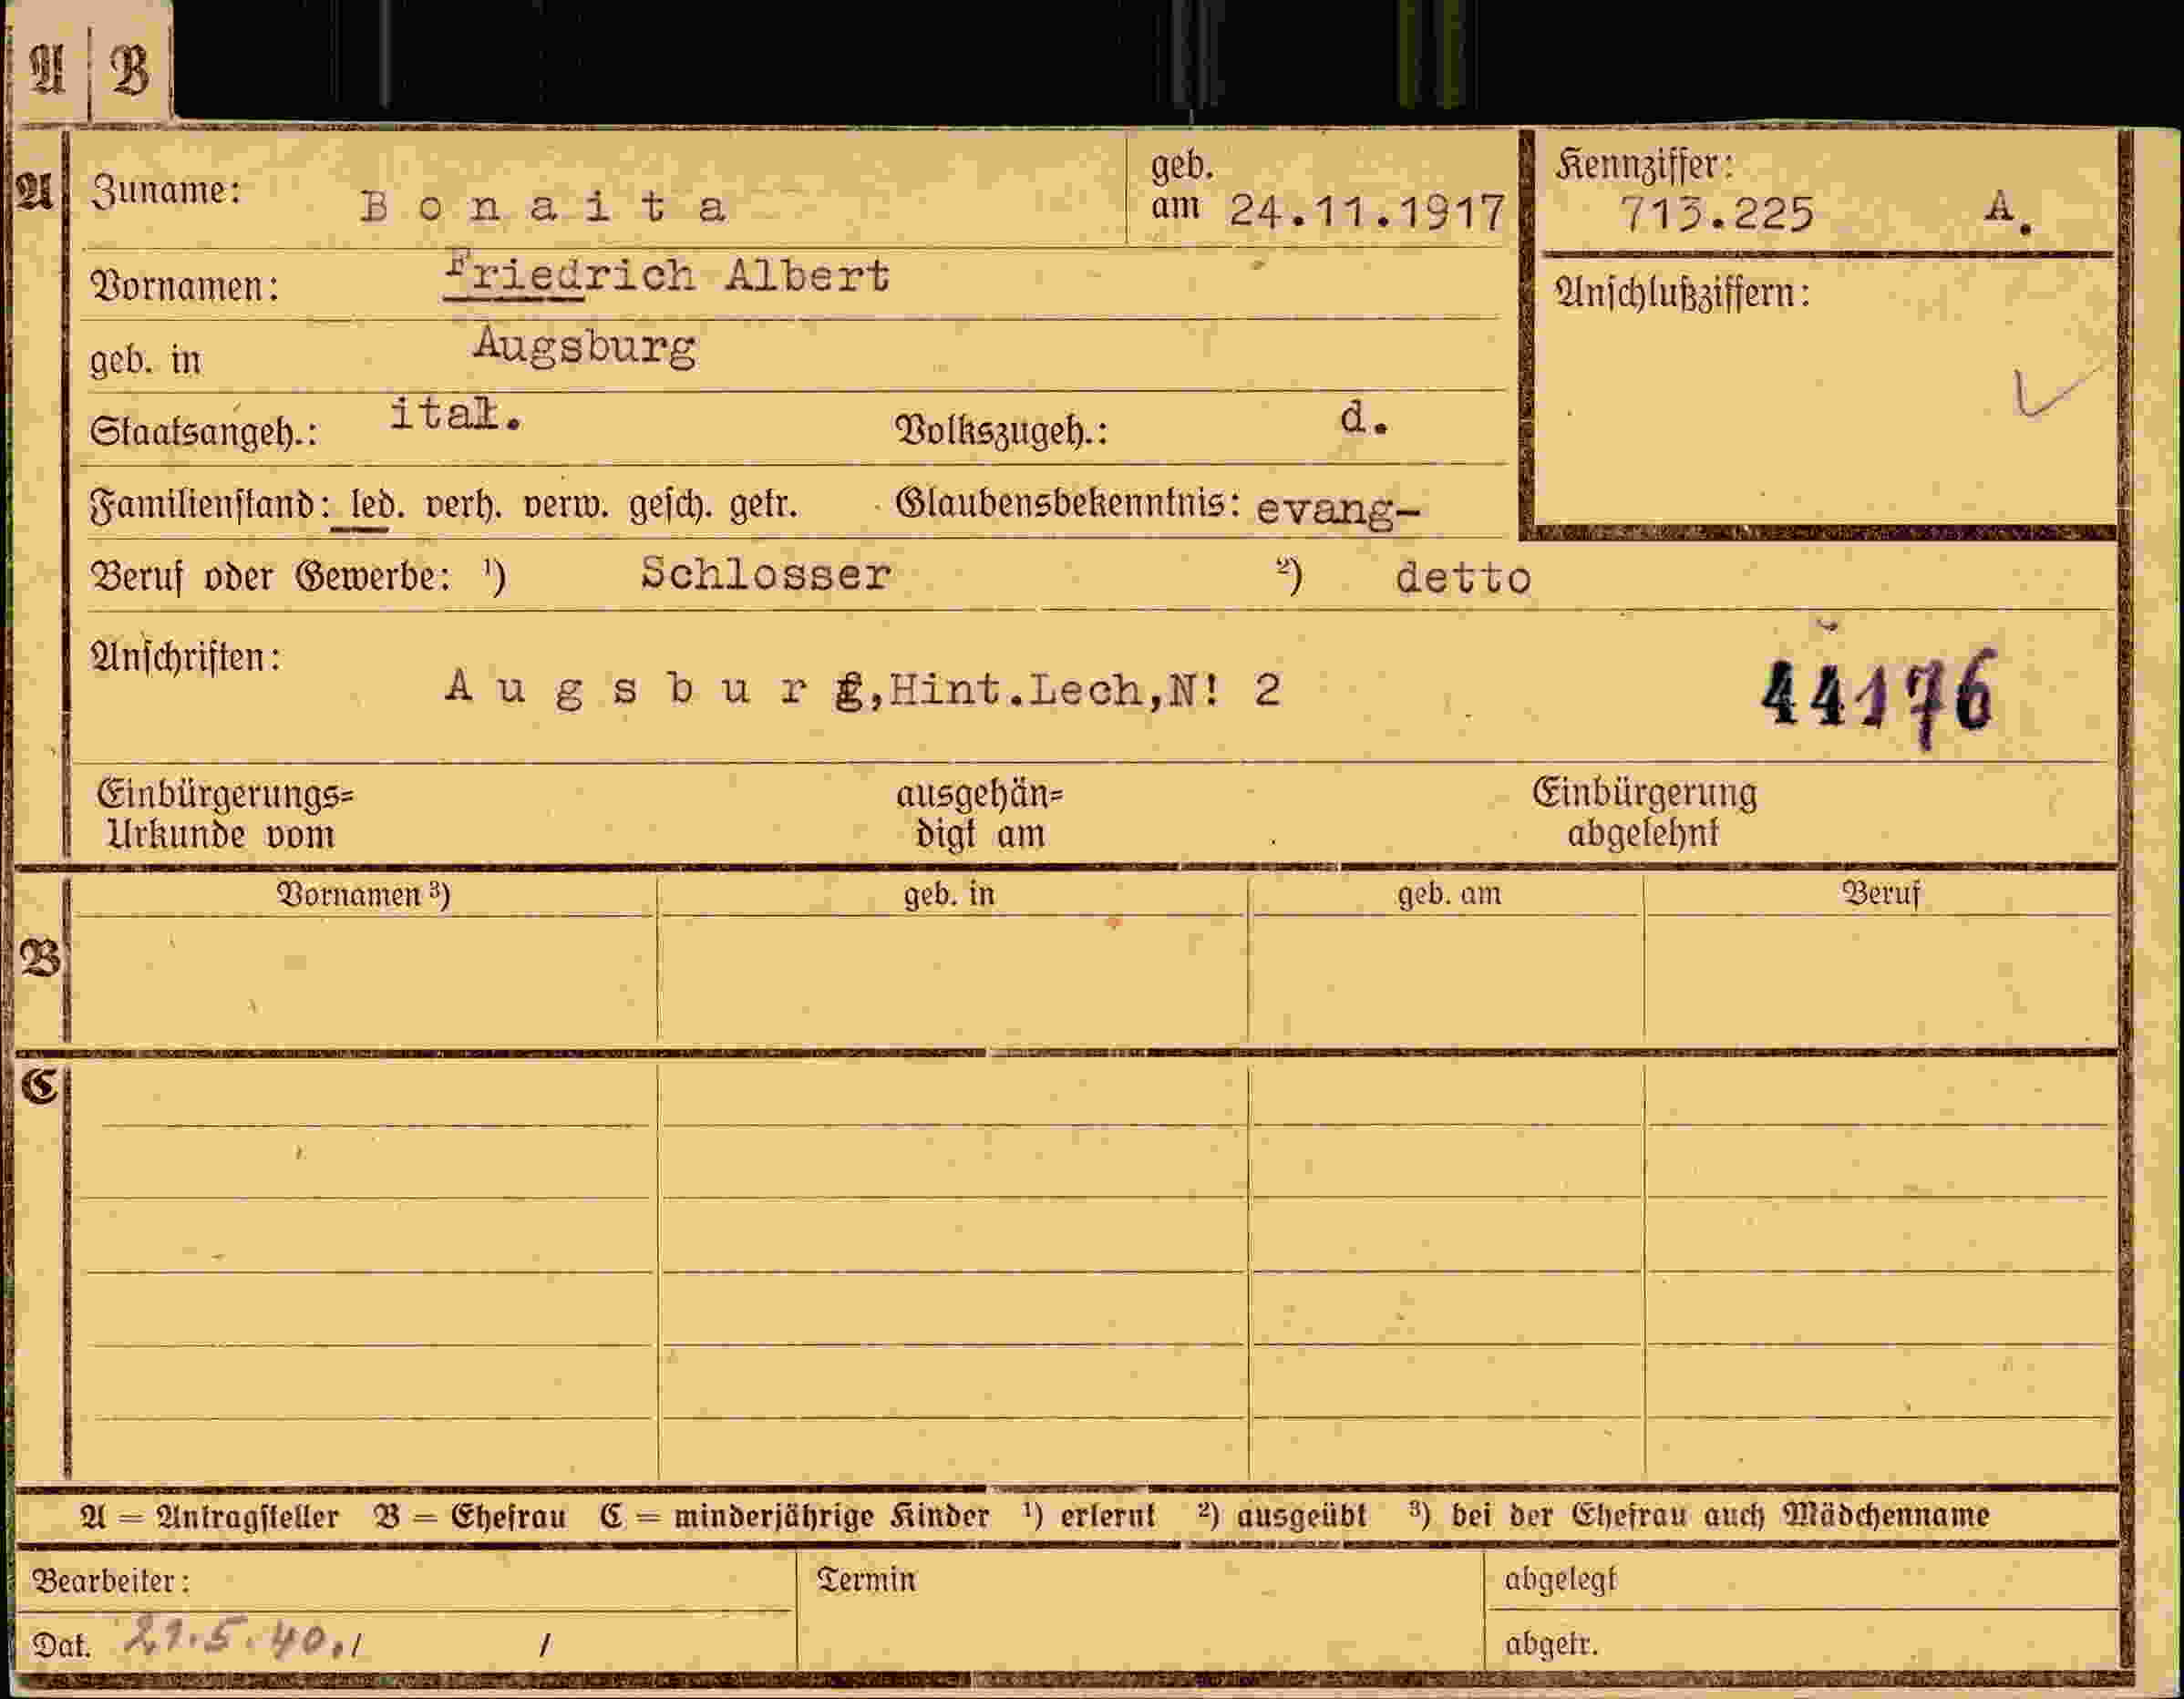 A B
A Zuname: Bonaita geb. am 24.11.1917 Kennziffer: 713.225 A.
Vornamen: Friedrich Albert Anschlußziffern:
geb. in Augsburg
Staatsangeh.: ital. Volkszugeh.: d.
Familienstand: led. verh. verw. gesch. getr. Glaubensbekenntnis: evang-
Beruf oder Gewerbe: ¹) Schlosser ²) detto
Anschriften: Augsburg,Hint.Lech,N! 2 44176
Einbürgerungs=
Urkunde vom
ausgehän=
digt am
Einbürgerung
abgelehnt
Vornamen ³) geb. in geb. am Beruf
B
C
A = Antragsteller B = Ehefrau C = minderjährige Kinder ¹) erlernt ²) ausgeübt ³) bei der Ehefrau auch Mädchenname
Bearbeiter: Termin abgelegt
Dat. 21.5.40./ / abgetr.